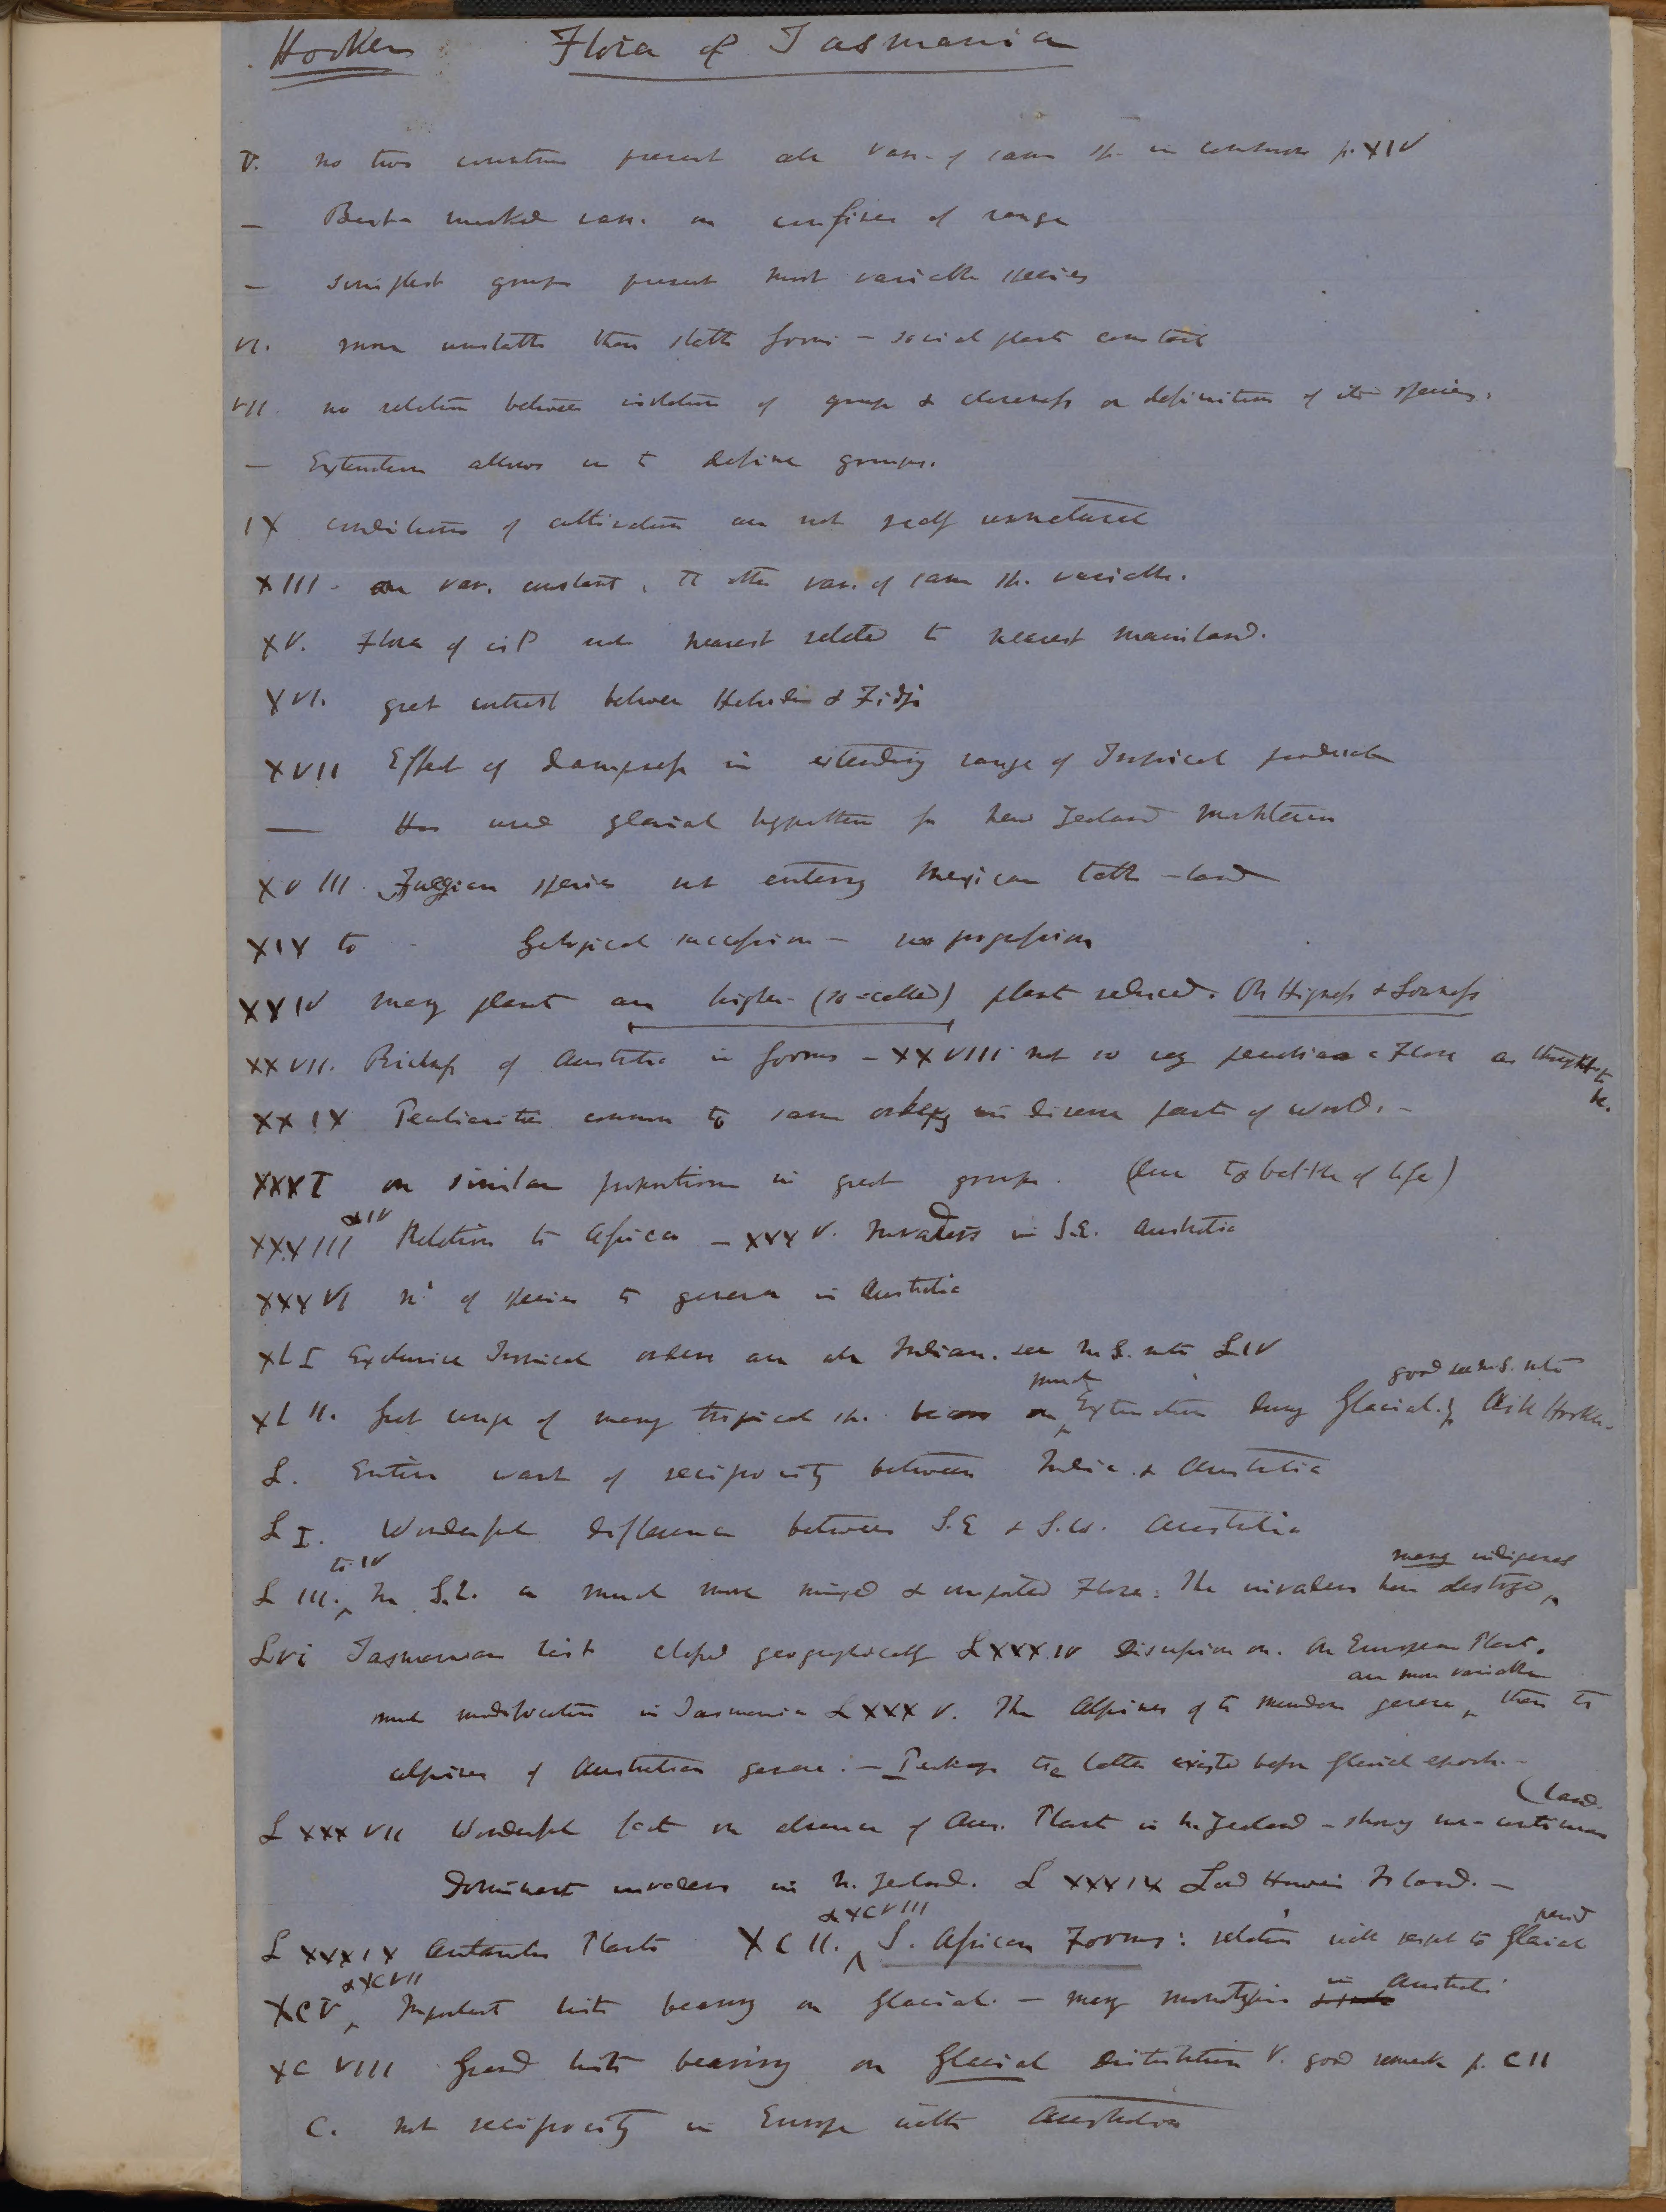 Hooker Flora of Tasmania
V. no two countries present all vars. of same sp. in common p. XIV
— Best marked vars. on confines of range
— Simplest groups present most variable species
VI. more unstable than stable forms — social plants constant
VII. no relation between isolation of group & closeness or definition of its species.
— Extinction allows us to define groups.
IX conditions of cultivation are not really unnatural
XIII. one var. constant, the other var. of same sp. variable.
XV. Flora of isd not nearest related to nearest mainland.
XVI. great contrast between Hebrides & Fidji
XVII Effect of dampness in extending range of Tropical productions
— Has used glacial hypothesis for New Zealand mountains
XVIII. Fuegian species not entering Mexican table-land
XIX to Geological succession — no progression
XXIV many plants are higher (so-called) plants reduced. On Highness & Lowness
XXVII. Richness of Australia in forms — XXVIII not so very peculiar a Flora as thought to be.
XXIX Peculiarities common to same orders in diverse parts of world. —
XXXI on similar proportions in great groups. (Due to battle of life)
XXXIII & IV Relation to Africa — XXXV. Invaders in S.E. Australia
XXXVI No of species to genera in Australia
XLI Exclusive Tropical orders are all Indian. see M.S. note LIV
XLII. Great range of many tropical sp. bears on much Extinction during Glacial. good see M.S. note Ask Hooker.
L. Entire want of reciprocity between India & Australia
LI. Wonderful difference between S.E & S.W. Australia
LIII. to IV In S.E. a much more mixed & imported Flora: The invaders have destroyed many indigenes
LVI Tasmanian list classed geographically LXXXIV Discussion on. On European Plants.
much modification in Tasmania LXXXV. The Alpines of the mundane genera are more variable than the
alpines of Australian genera. — Perhaps the latter existed before glacial epoch. —
LXXXVII Wonderful fact on absence of Aus. Plants in N. Zealand — showing non-continuous (land.
Dominant invaders in N. Zealand. LXXXIX Lord Howe's Island. —
LXXXIX Antarctic Plants XCII. & XCVIII S. African Forms: relation with respect to Glacial period
XCV & XCVII Important lists bearing on Glacial. — many monotypes in Australia
XCVIII Grand lists bearing on Glacial Distribution V. good remark p. CII
C. Not reciprocity in Europe with Australia